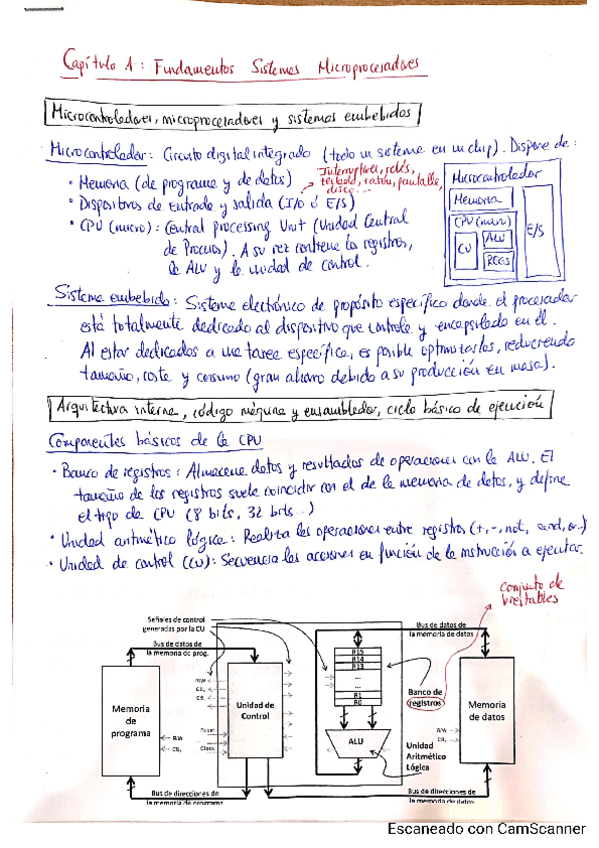 Capítulo 1: Fundamentos Sistemas Microprocesadores
Microcontroladores, microprocesadores y sistemas embebidos
Microcontrolador: Circuito digital integrado (todo un sistema en un chip). Dispone de:
• Memoria (de programa y de datos)
Interruptores, relés,
teclado, ratón, pantalla,
disco...
• Dispositivos de entrada y salida (I/O ó E/S)
• CPU (micro): Central processing Unit (Unidad Central
de Proceso). A su vez contiene los registros,
la ALU y la unidad de control.
Microcontrolador
Memoria
CPU (micro)
CU
ALU
REGS
E/S
Sistema embebido: Sistema electrónico de propósito específico donde el procesador
está totalmente dedicado al dispositivo que controla y encapsulado en él.
Al estar dedicados a una tarea específica, es posible optimizarlos, reduciendo
tamaño, coste y consumo (gran ahorro debido a su producción en masa).
Arquitectura interna, código máquina y ensamblador, ciclo básico de ejecución
Componentes básicos de la CPU
• Banco de registros: Almacena datos y resultados de operaciones con la ALU. El
tamaño de los registros suele coincidir con el de la memoria de datos, y define
el tipo de CPU (8 bits, 32 bits...)
• Unidad aritmético lógica: Realiza las operaciones entre registros (+, -, not, and, or...)
• Unidad de control (CU): Secuencia las acciones en función de la instrucción a ejecutar.
conjunto de
biestables
Señales de control
generadas por la CU
Bus de datos de
la memoria de prog.
Bus de datos de
la memoria de datos
Memoria
de
programa
R/W
CS
R/W
CS
CS
Reset
Clock
Unidad de
Control
R15
R14
R13
...
R1
R0
ALU
Banco de
registros
Unidad
Aritmético
Lógica
Memoria
de datos
R/W
CS
Bus de direcciones de
la memoria de programa
Bus de direcciones de
la memoria de datos
Escaneado con CamScanner